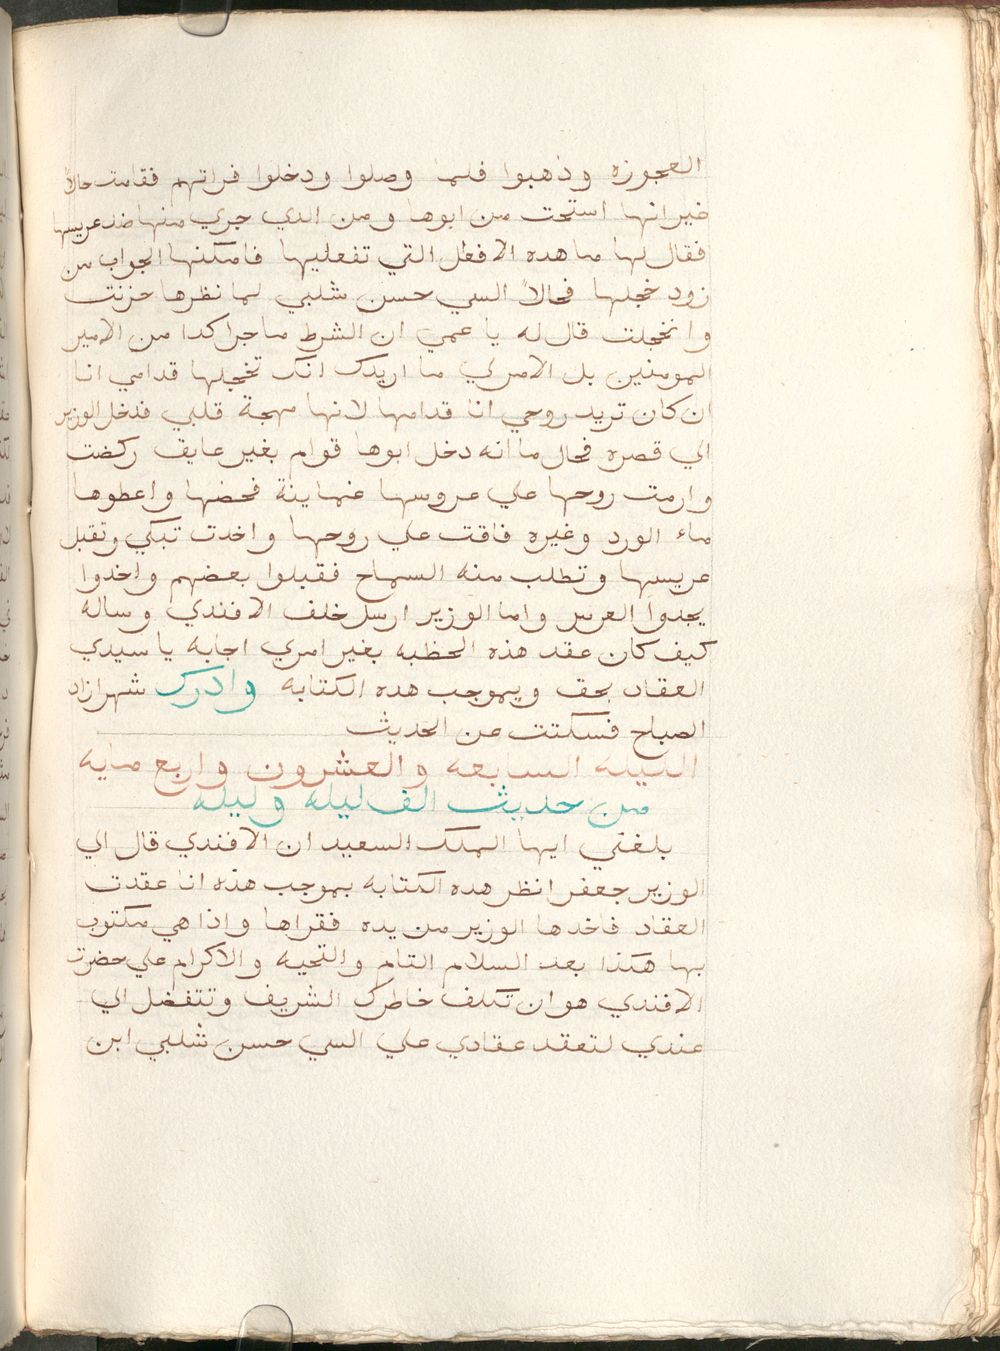 العجوزه وذهبوا فلما وصلوا ودخلوا فراتهم فقامت حالاً
خيرانها استحت من ابوها ومن الدي جري منها ضد عريسها
فقال لها ما هده الافعل التي تفعليها فامكنها الجواب من
زود خجلها فحالاً السي حسن شلبي لما نظرها حزنت
وانخجلت قال له يا عمي ان الشرط ماجرا كدا من الامير
المومنين بل الامر لي ما اريدك انك تخجلها قدامي انا
ان كان تريد روحي انا قدامها لانها مهجة قلبي فدخل الوزير
الي قصره فحال ما انه دخل ابوها قوام بغير عايق ركضت
وارمت روحها علي عروسها غمياينة فحضها واعطوها
ماء الورد وغيره فاقت علي روحها واخدت تبكي وتقبل
عريسها وتطلب منه السماح فقبلوا بعضهم واخدوا
يجدوا العرس واما الوزير ارسل خلف الافندي وساله
كيف كان عقد هذه الخطبه بغير امري اجابه يا سيدي
العقاد بحق وبموجب هده الكتابه وادرك شهرازاد
الصباح فسكتت عن الحديث
الليله السابعه والعشرون واربع مايه
من حديث الف ليله وليله
بلغني ايها الملك السعيد ان الافندي قال الي
الوزير جعفر انظر هده الكتابه بموجب هذه انا عقدت
العقاد فاخدها الوزير من يده فقراها واذا هي مكتوب
بها هكذا بعد السلام التام والتحيه والاكرام علي حضرت
الافندي هو ان تكلف خاطرك الشريف وتتفضل الي
عندي لتعقد عقادي علي السي حسن شلبي ابن